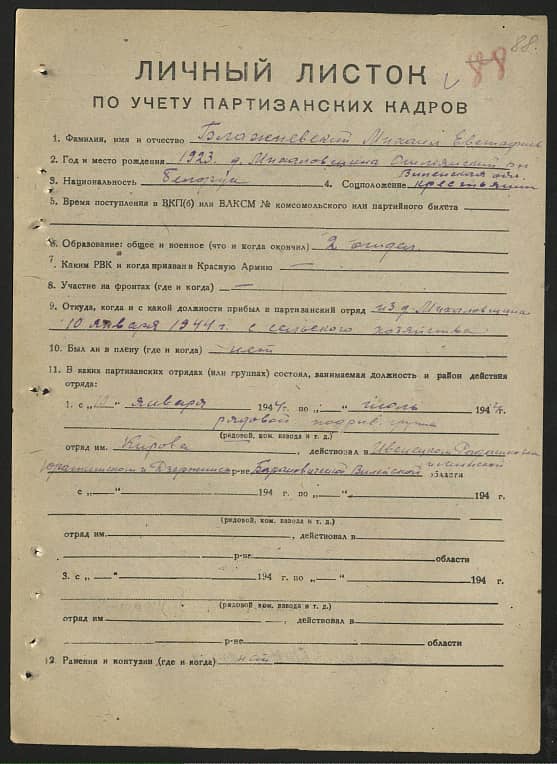 88.
88
ЛИЧНЫЙ ЛИСТОК
ПО УЧЕТУ ПАРТИЗАНСКИХ КАДРОВ
1. Фамилия, имя и отчество Блажневский Михаил
2. Год и место рождения 1923. д. Михаловщина Ошмянский р-н
Виленская обл.
3. Национальность Белорус 4. Соцположение крестьянин
5. Время поступления в ВКП(б) или ВЛКСМ № комсомольского или партийного билета
6. Образование: общее и военное (что и когда окончил) 2
7. Каким РВК и когда призван в Красную Армию —
8. Участие на фронтах (где и когда) —
9. Откуда, когда и с какой должности прибыл в партизанский отряд из д. Михаловщина
10 января 1944 г. с сельского хозяйства
10. Был ли в плену (где и когда) нет
11. В каких партизанских отрядах (или группах) состоял, занимаемая должность и район действия
отряда:
1. с „10" января 1944 г. по „ — " июль 1944 г.
рядовой подрыв. группа
(рядовой, ком. взвода и т. д.)
отряд им. Кирова, действовал в Ивенецком
и Дзержинск р-не Барановичской Вилейской области
с „ — " 194 г. по „ — " 194 г.
(рядовой, ком. взвода и т. д.)
отряд им. , действовал в
р-не области
3. с „ — " 194 г. по „ — " 194 г.
(рядовой, ком. взвода и т. д.)
отряд им , действовал в
р-не области
2. Ранения и контузии (где и когда) нет